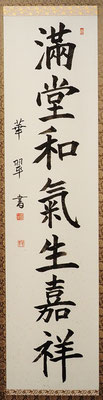 滿堂和氣生嘉祥
華翠書